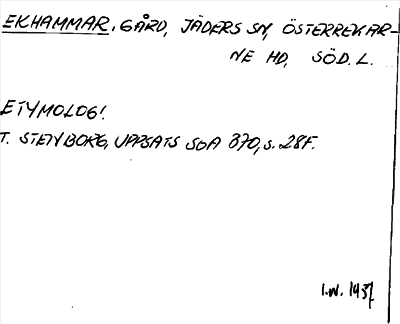 EKHAMMAR, GÅRD, JÄDERS SN, ÖSTERREKAR-
NE HD, SÖD. L.
ETYMOLOGI
T. STENBORG, UPPSATS SOA 370, S. 28F.
I.W. 1937